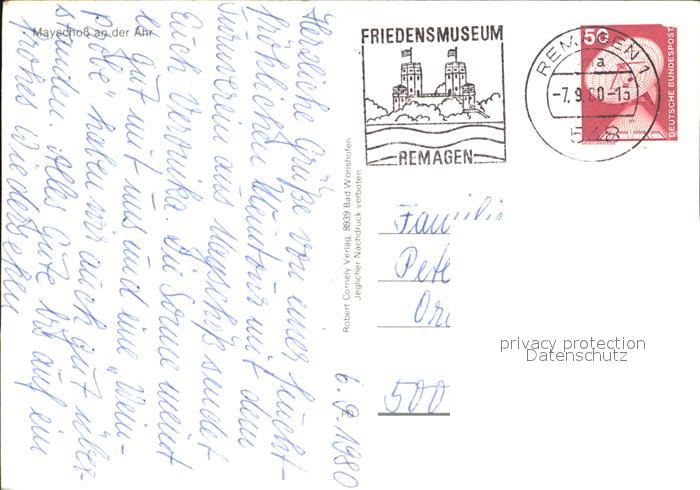 Mayschoß an der Ahr
Herzliche Grüße von einer feucht-
fröhlichen Weintour mit dem
Turnverein aus Mayschoß sendet
Euch Veronika. Die Sonne meint
es gut mit uns und eine "Wein-
probe" haben wir auch gut über-
standen. Alles Gute bis auf ein
frohes Wiedersehen
6.9.1980
Robert Cornely Verlag, 8939 Bad Wörishofen
Jeglicher Nachdruck verboten
FRIEDENSMUSEUM
REMAGEN
REMAGEN 1
a
-7.9.80-13
548
50
DEUTSCHE BUNDESPOST
Familie
Pete
500
privacy protection
Datenschutz